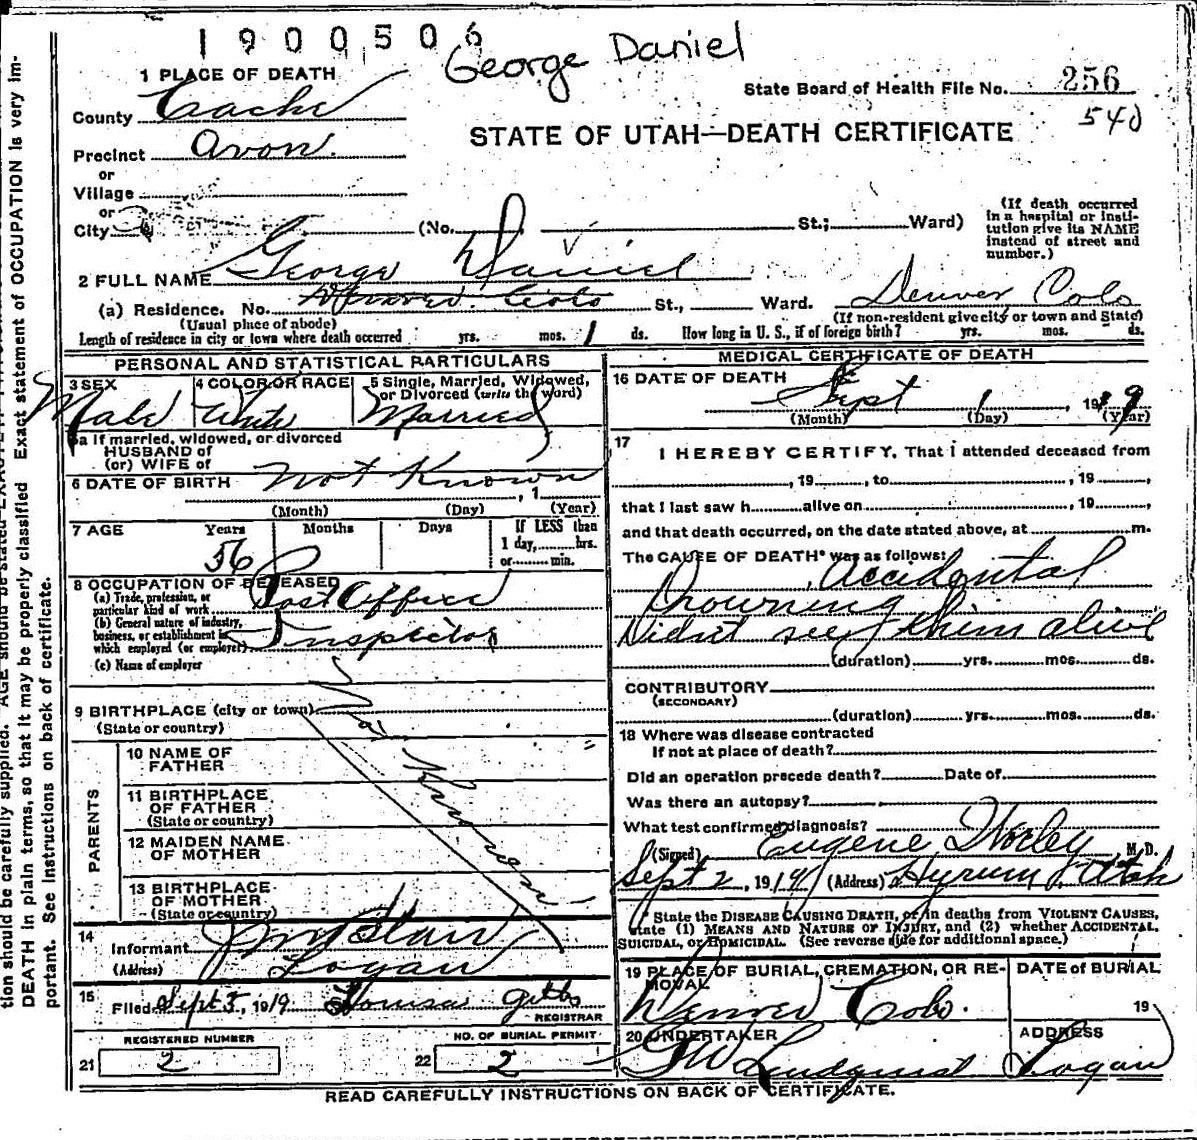 1900506
George Daniel
1 PLACE OF DEATH
State Board of Health File No. 256
County Cache
540
STATE OF UTAH—DEATH CERTIFICATE
Precinct Avon.
or
Village
or
City
(No. St.; Ward)
(If death occurred in a hospital or institution give its NAME instead of street and number.)
2 FULL NAME George Daniel
(a) Residence. No. Denver Colo St., Ward. Denver Colo
(Usual place of abode) (If non-resident give city or town and State)
Length of residence in city or town where death occurred yrs. mos. 1 ds. How long in U. S., if of foreign birth? yrs. mos. ds.
PERSONAL AND STATISTICAL PARTICULARS
3 SEX Male
4 COLOR OR RACE White
5 Single, Married, Widowed, or Divorced (write the word) Married
5a If married, widowed, or divorced
HUSBAND of
(or) WIFE of
6 DATE OF BIRTH Not Known , 1
(Month) (Day) (Year)
7 AGE Years Months Days If LESS than
56
1 day, hrs.
or min.
8 OCCUPATION OF DECEASED
(a) Trade, profession, or particular kind of work Post Office
(b) General nature of industry, business, or establishment in which employed (or employer) Inspector
(c) Name of employer
9 BIRTHPLACE (city or town)
(State or country)
Not Known
PARENTS
10 NAME OF FATHER
11 BIRTHPLACE OF FATHER
(State or country)
12 MAIDEN NAME OF MOTHER
13 BIRTHPLACE OF MOTHER
(State or country)
14
Informant
(Address) Logan
15
Filed Sept 5, 1919 Louisa Gibbs
REGISTRAR
REGISTERED NUMBER
21 2
NO. OF BURIAL PERMIT
22 2
MEDICAL CERTIFICATE OF DEATH
16 DATE OF DEATH
Sept 1, 1919
(Month) (Day) (Year)
17
I HEREBY CERTIFY, That I attended deceased from
, 19 , to , 19 ,
that I last saw h alive on , 19 ,
and that death occurred, on the date stated above, at m.
The CAUSE OF DEATH* was as follows:
Accidental
Drowning
Didn't see him alive
(duration) yrs. mos. ds.
CONTRIBUTORY
(SECONDARY)
(duration) yrs. mos. ds.
18 Where was disease contracted
If not at place of death?
Did an operation precede death? Date of
Was there an autopsy?
What test confirmed diagnosis?
(Signed) Eugene Worley, M. D.
Sept 2, 1919 (Address) Hyrum Utah
* State the DISEASE CAUSING DEATH, or in deaths from VIOLENT CAUSES,
state (1) MEANS AND NATURE OF INJURY, and (2) whether ACCIDENTAL,
SUICIDAL, or HOMICIDAL. (See reverse side for additional space.)
19 PLACE OF BURIAL, CREMATION, OR REMOVAL
Denver Colo.
DATE of BURIAL
19
20 UNDERTAKER
Lindquist
ADDRESS
Logan
READ CAREFULLY INSTRUCTIONS ON BACK OF CERTIFICATE.
tion should be carefully supplied. AGE should be stated
DEATH in plain terms, so that it may be properly classified Exact statement of OCCUPATION is very im-
portant. See Instructions on back of certificate.